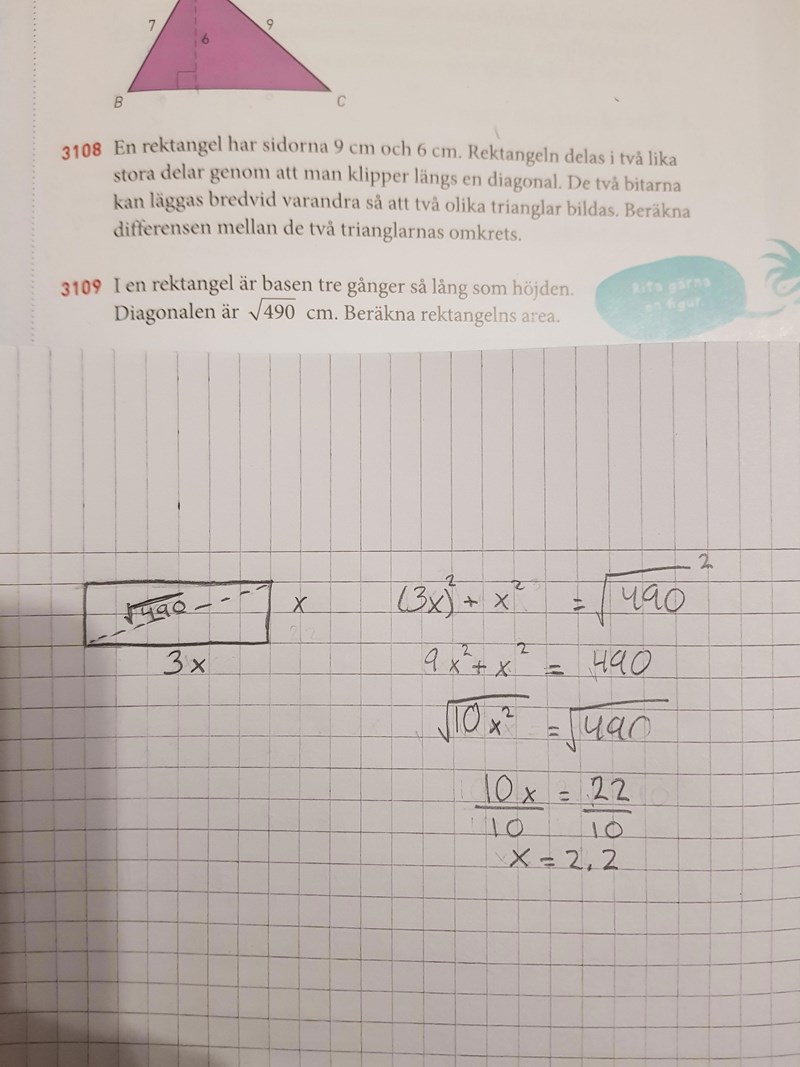 7
6
9
B
C
3108 En rektangel har sidorna 9 cm och 6 cm. Rektangeln delas i två lika
stora delar genom att man klipper längs en diagonal. De två bitarna
kan läggas bredvid varandra så att två olika trianglar bildas. Beräkna
differensen mellan de två trianglarnas omkrets.
3109 I en rektangel är basen tre gånger så lång som höjden.
Diagonalen är √490 cm. Beräkna rektangelns area.
Rita gärna
en figur.
√490
x
3x
(3x)² + x² = √490²
9x² + x² = 490
√10x² = √490
10x/10 = 22/10
x = 2,2